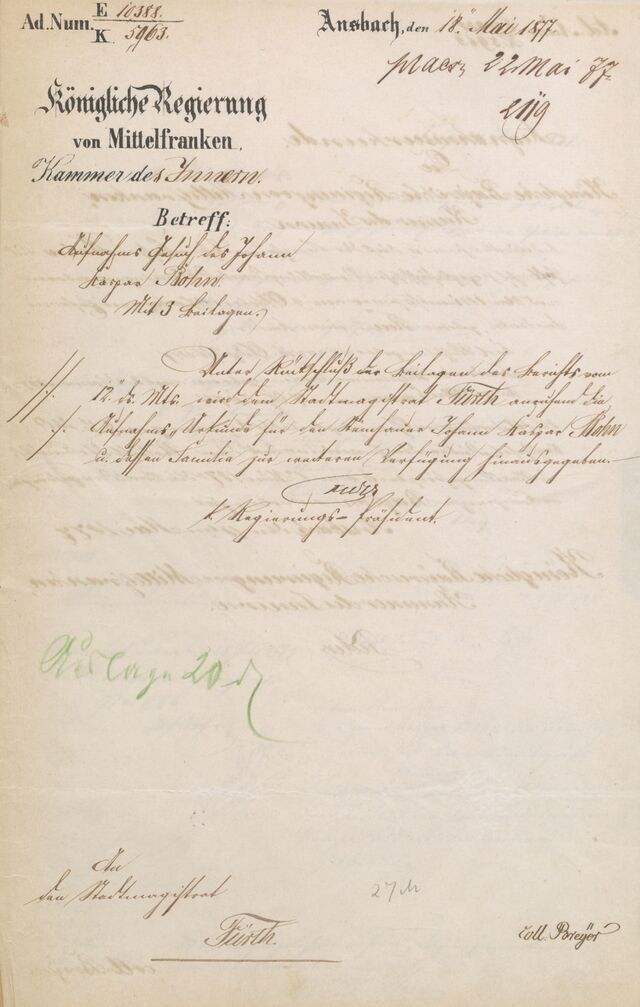 Ad. Num. E 10388.
K. 5963.
Ansbach, den 18ten Mai 1877.
praes. 22 Mai 77.
Königliche Regierung
von Mittelfranken,
Kammer des Innern.
Betreff:
Aufnahms Gesuch des Johann
Kaspar Bohn.
Mit 3 Beilagen.
Unter Rückschluß der Beilagen des Berichts vom
12. ds. Mts. wird dem Stadtmagistrat Fürth anruhend die
Aufnahms-Urkunde für den Johann Kaspar Bohn
u. dessen Familie zur weiteren Verfügung hinausgegeben.
k. Regierungs-Präsident.
Auslage 20 d
An
den Stadtmagistrat
Fürth.
27 M
coll. Breyer